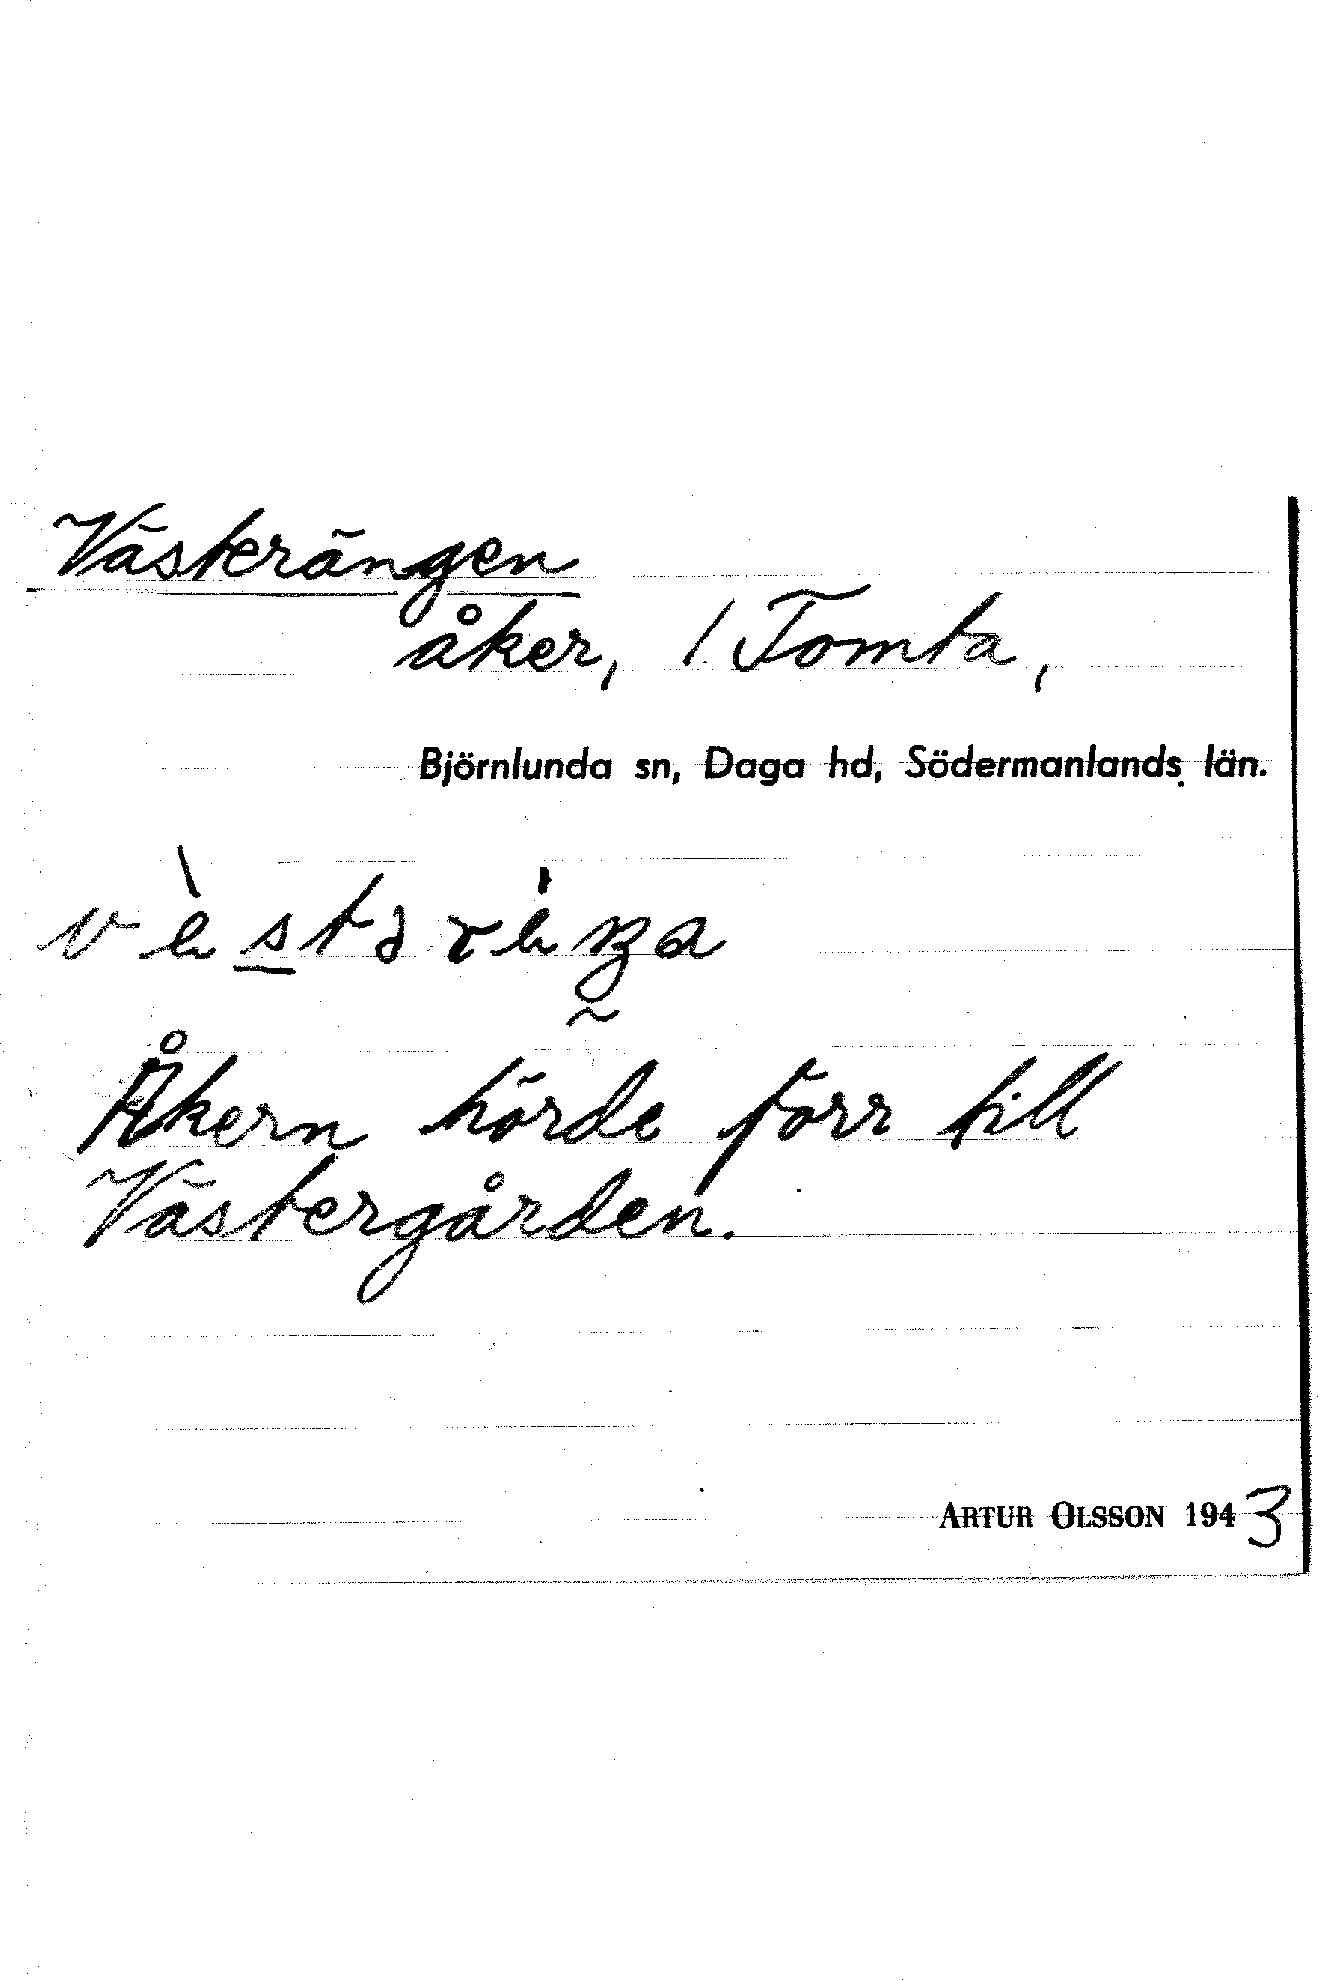 Västerängen
åker, / Tomta,
Björnlunda sn, Daga hd, Södermanlands län.
Åkern hörde förr till
Västergården.
ARTUR OLSSON 1943